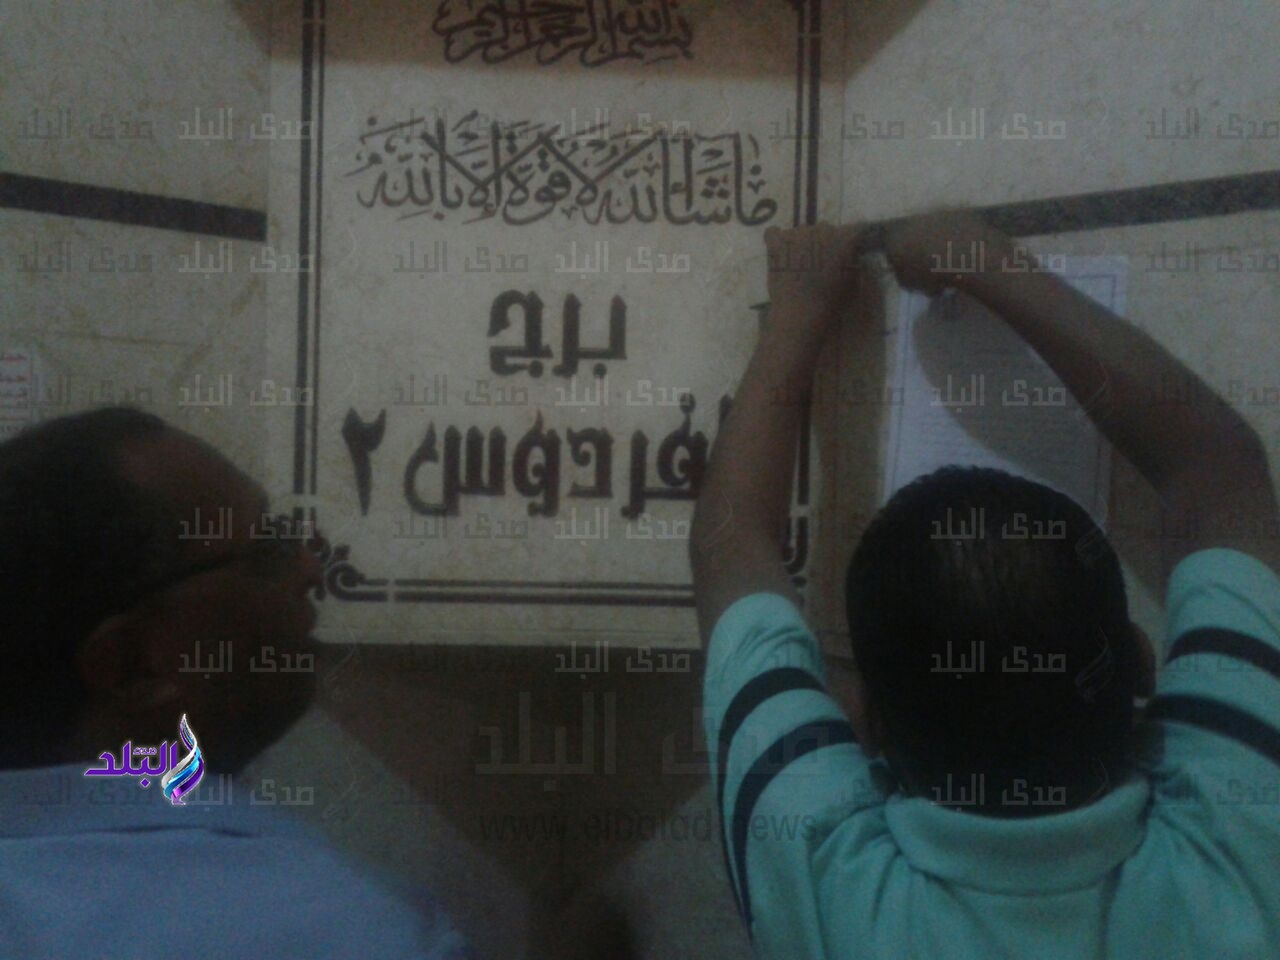 بسم الله الرحمن الرحيم
ما شاء الله لا قوة إلا بالله
برج
الفردوس ٢
صدى البلد
صدى البلد
www.elbalad.news